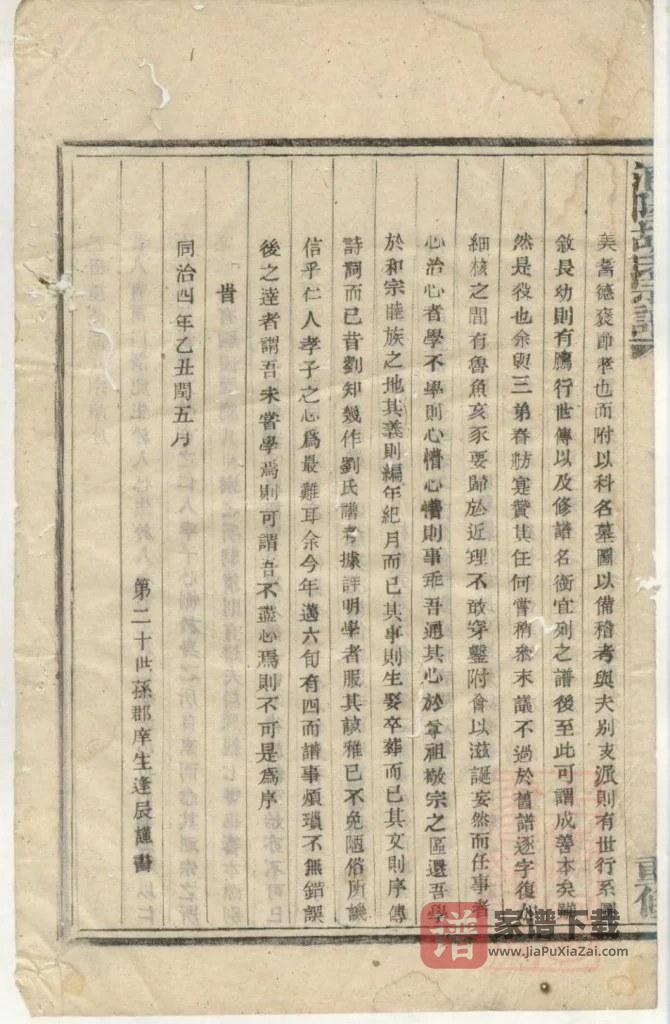 美耆德褒節孝也而附以科名墓圖以備稽考與夫别支派則有世行系圖
敘長幼則有鴈行世傳以及修譜名銜宜列之譜後至此可謂成善本矣雖
然是役也余與三弟春舫寔贊其任何嘗稍參末議不過於舊譜逐字復加
細核之間有魯魚亥豕要歸於近理不敢穿鑿附會以滋誕妄然而任事者
心治心者學不學則心懵心懵則事乖吾通其心於尊祖敬宗之區還吾學
於和宗睦族之地其義則編年紀月而已其事則生娶卒葬而已其文則序傳
詩詞而已昔劉知幾作劉氏譜考據詳明學者服其該雅已不免陋俗所譏
信乎仁人孝子之心為最難耳余今年邁六旬有四而譜事煩瑣不無錯誤
後之達者謂吾未嘗學焉則可謂吾不盡心焉則不可是為序
旹
同治四年乙丑閏五月
第二十世孫郡庠生逢辰謹書
家谱下载
www.JiaPuXiaZai.com
谱